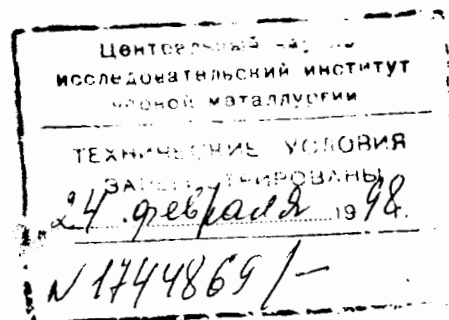 Центральный научно
исследовательский институт
черной металлургии
ТЕХНИЧЕСКИЕ УСЛОВИЯ
ЗАРЕГИСТРИРОВАНЫ
24 февраля 1998г.
N 1744869/-